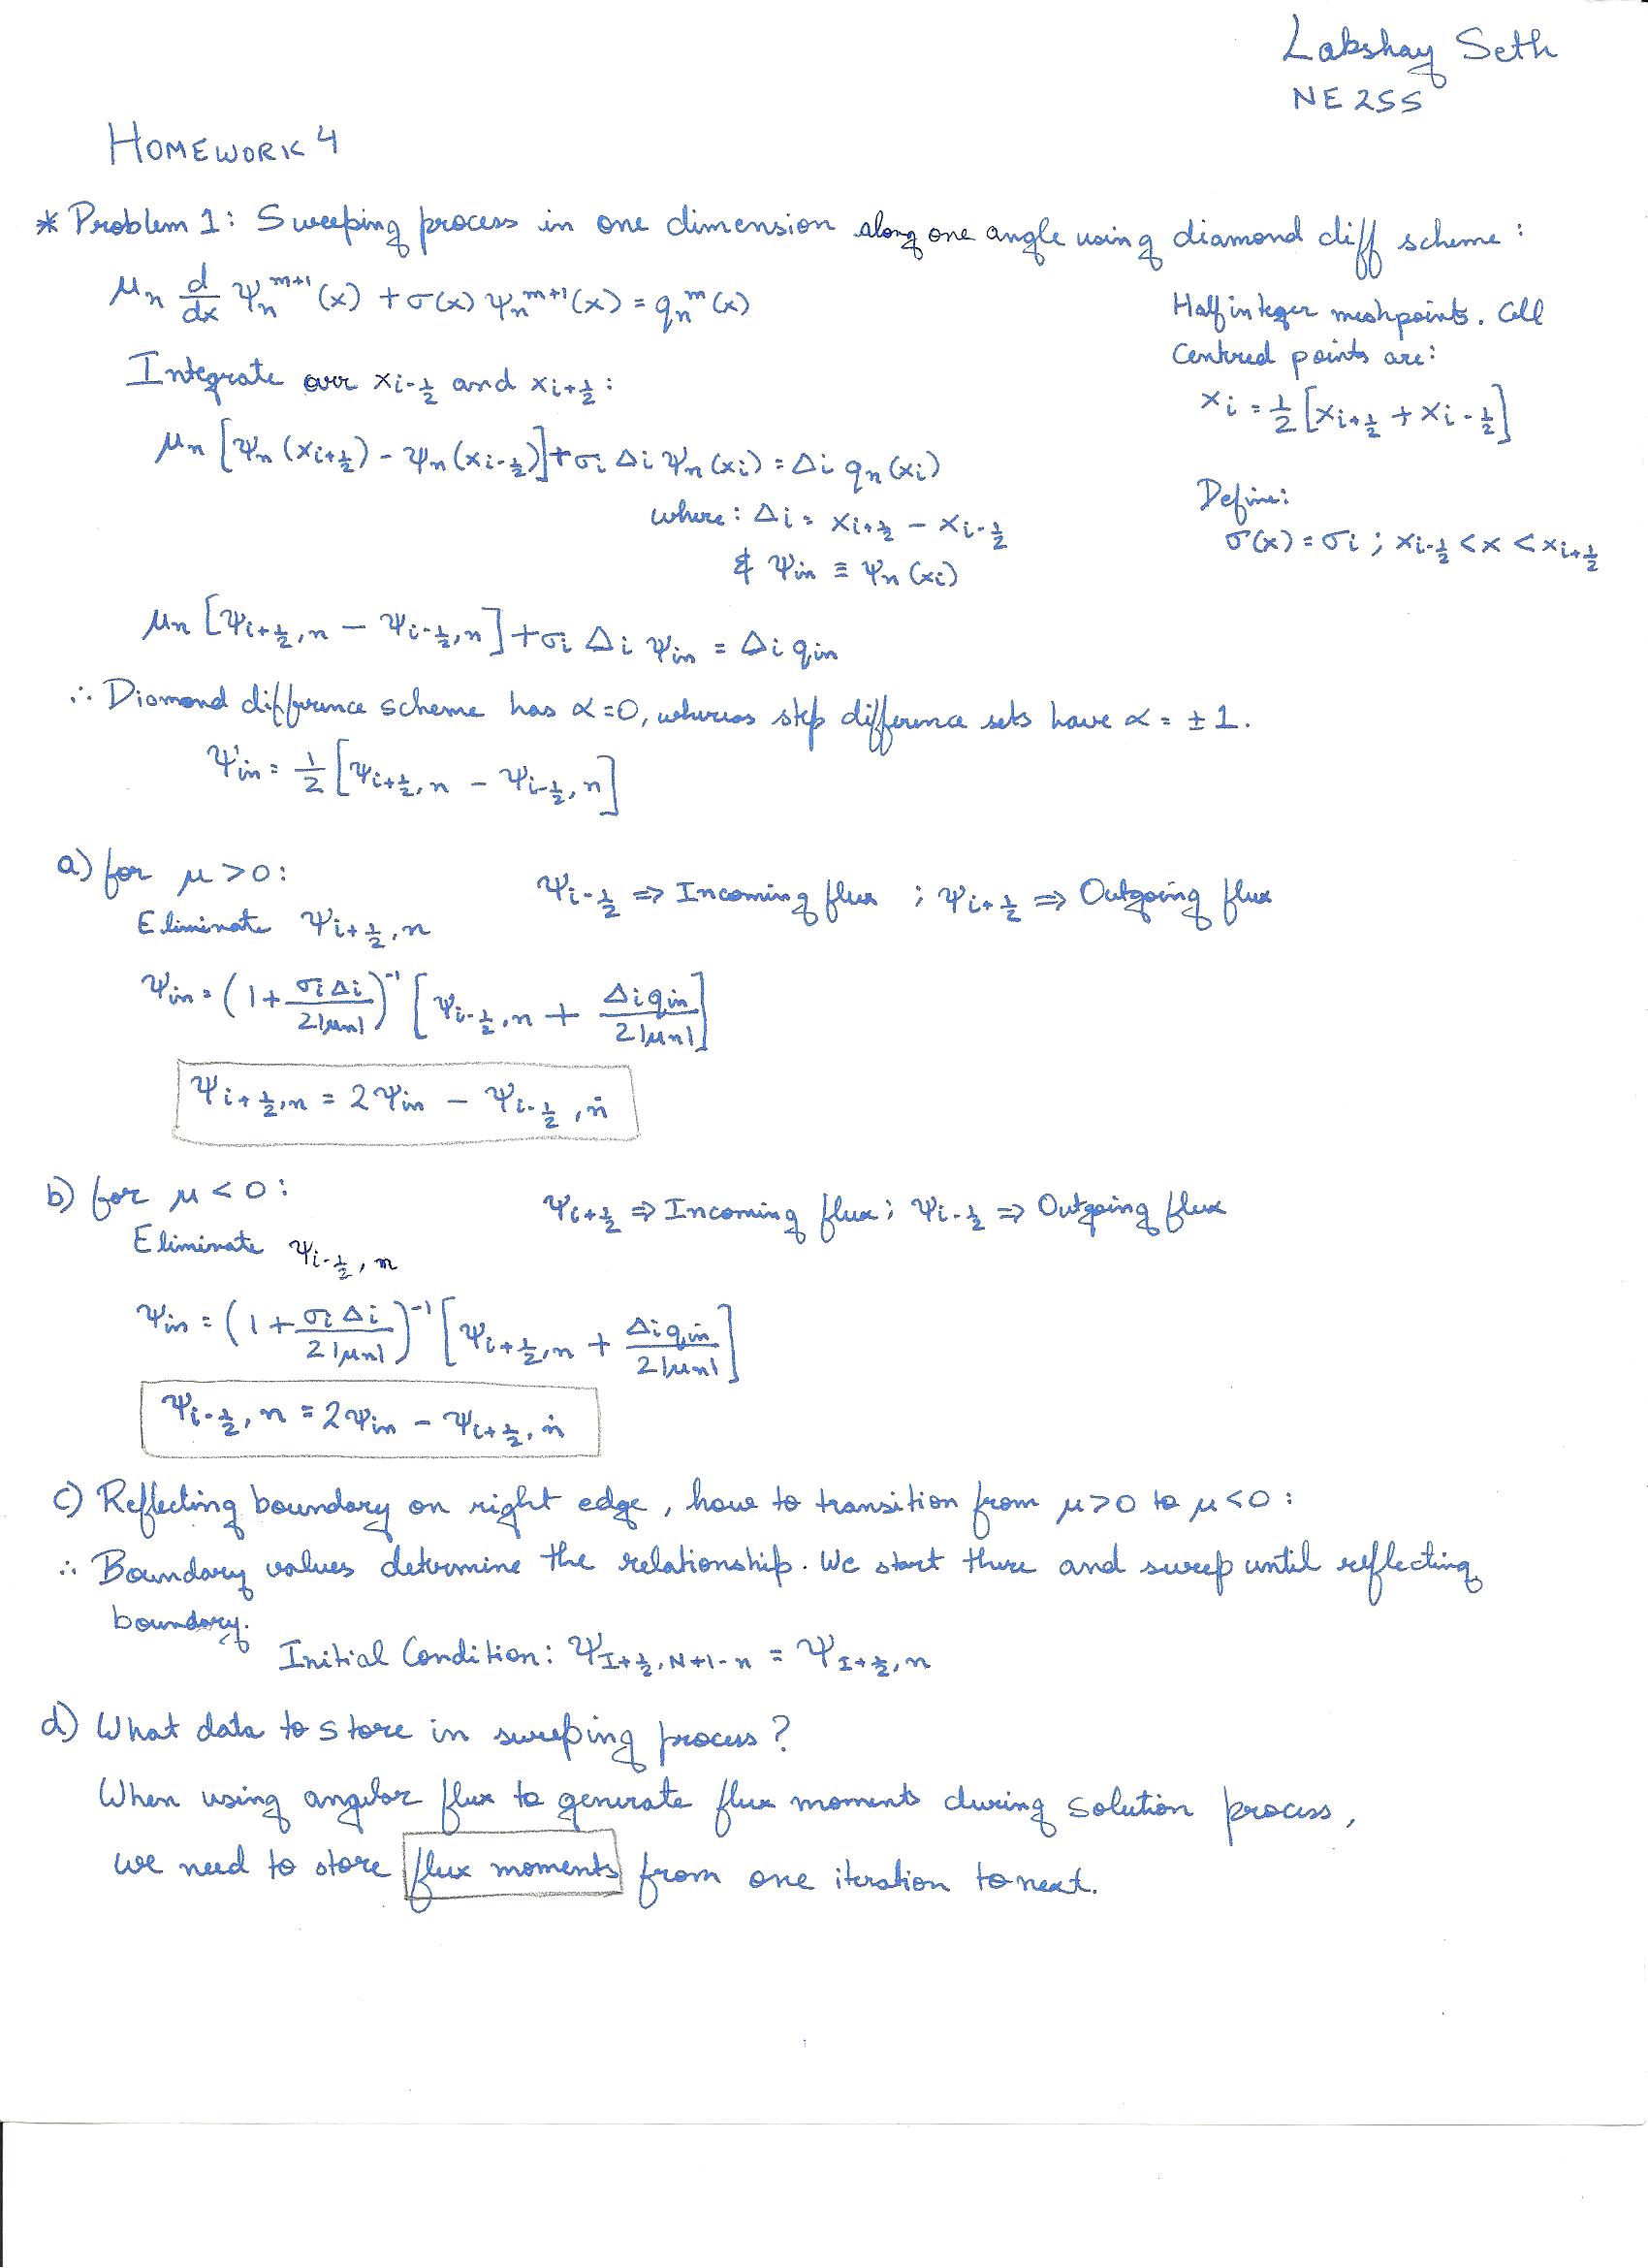 Lakshay Seth
NE 255
HOMEWORK 4
* Problem 1: Sweeping process in one dimension along one angle using diamond diff scheme:
μn d/dx ψn^m+1 (x) + σ(x) ψn^m+1 (x) = qn^m (x)
Half integer meshpoints. Cell
Centred points are:
Integrate over xi-½ and xi+½ :
xi = ½ [xi+½ + xi-½]
μn [ψn (xi+½) - ψn (xi-½)] + σi Δi ψn (xi) = Δi qn (xi)
where: Δi = xi+½ - xi-½
Define:
σ(x) = σi ; xi-½ < x < xi+½
& ψin ≡ ψn (xi)
μn [ψi+½,n - ψi-½,n] + σi Δi ψin = Δi qin
∴ Diamond difference scheme has α=0, whereas step difference sets have α = ± 1.
ψin = ½ [ψi+½,n - ψi-½,n]
a) for μ > 0:
ψi-½ => Incoming flux ; ψi+½ => Outgoing flux
Eliminate ψi+½,n
ψin = (1 + σiΔi / 2|μn|)^-1 [ψi-½,n + Δiqin / 2|μn|]
ψi+½,n = 2ψin - ψi-½,n
b) for μ < 0:
ψi+½ => Incoming flux; ψi-½ => Outgoing flux
Eliminate ψi-½,n
ψin = (1 + σiΔi / 2|μn|)^-1 [ψi+½,n + Δiqin / 2|μn|]
ψi-½,n = 2ψin - ψi+½,n
c) Reflecting boundary on right edge, how to transition from μ>0 to μ<0:
∴ Boundary values determine the relationship. We start there and sweep until reflecting
boundary.
Initial Condition: ψI+½,N+1-n = ψI+½,n
d) What data to store in sweeping process?
When using angular flux to generate flux moments during solution process,
we need to store flux moments from one iteration to next.